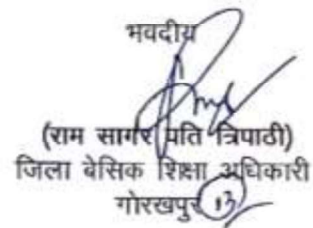 भवदीय
(राम सागर पति त्रिपाठी)
जिला बेसिक शिक्षा अधिकारी
गोरखपुर 13